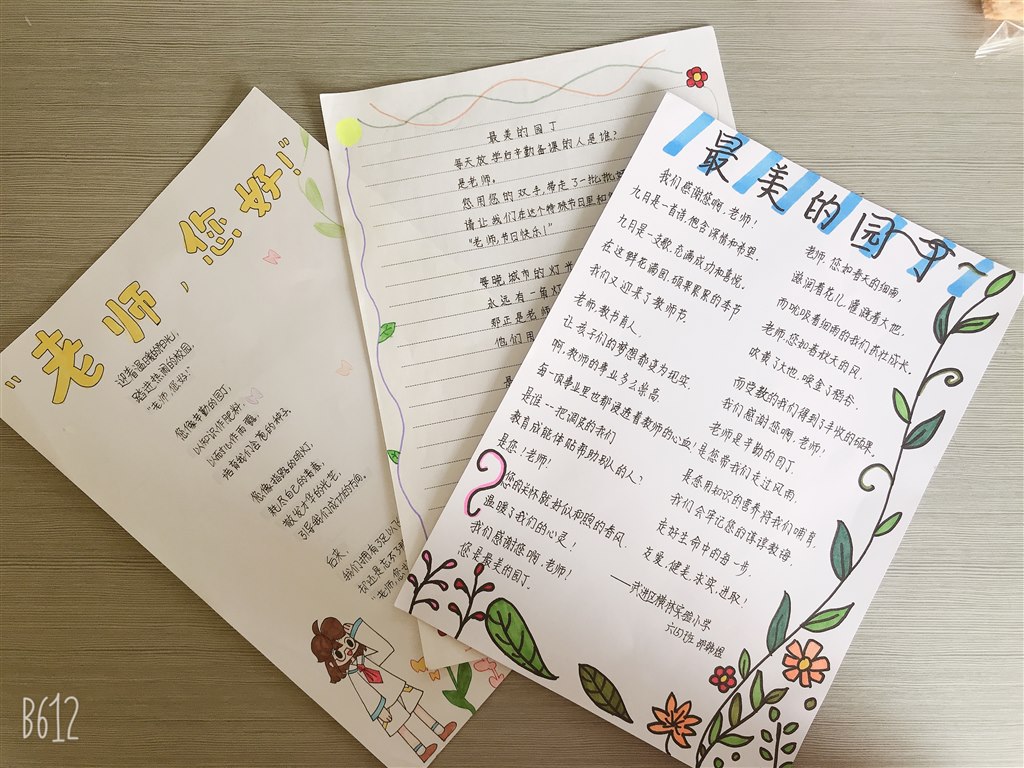 "老师，您好！"
迎着温暖的阳光，
踏进热闹的校园，
"老师，您好！"
您像辛勤的园丁，
以知识作肥料，
以
培育我们
您像指路的明灯，
耗尽自己的青春，
散发才华的光芒，
引导我们成功的方向。
后来，
我们拥有了
却还是忘不了
"老师，您
最美的园丁
每天放学后辛勤备课的人是谁？
是老师。
您用您的双手，带走了一批批
请让我们在这个特殊节日里和
"老师，节日快乐！"
每晚城市的灯光
永远有一角灯
那正是老师
他们用
最
最美的园丁
我们感谢您啊，老师！
九月是一首诗，饱含深情和希望，
九月是一支歌，充满成功和喜悦。
在这鲜花满园，硕果累累的季节
我们又迎来了教师节。
老师，教书育人，
让孩子们的梦想都变为现实。
啊，教师的事业多么崇高，
每一项事业里也都浸透着教师的心血，
是谁——把调皮的我们
教育成能体贴帮助别人的人？
是您！老师！
您的关怀就好似和煦的春风，
温暖了我们的心灵！
我们感谢您啊，老师！
您是最美的园丁。
老师，您如春天的细雨，
滋润着花儿，灌溉着大地，
而吮吸着细雨的我们茁壮成长。
老师，您如着秋天的风，
吹黄了大地，唤金了稻谷，
而受教的我们得到了丰收的硕果。
我们感谢您啊，老师！
老师是辛勤的园丁，
是您带我们走过风雨，
是您用知识的营养将我们哺育，
我们会牢记您的谆谆教诲，
走好生命中的每一步，
友爱，健美，求实，进取！
——武进区横林实验小学
B612